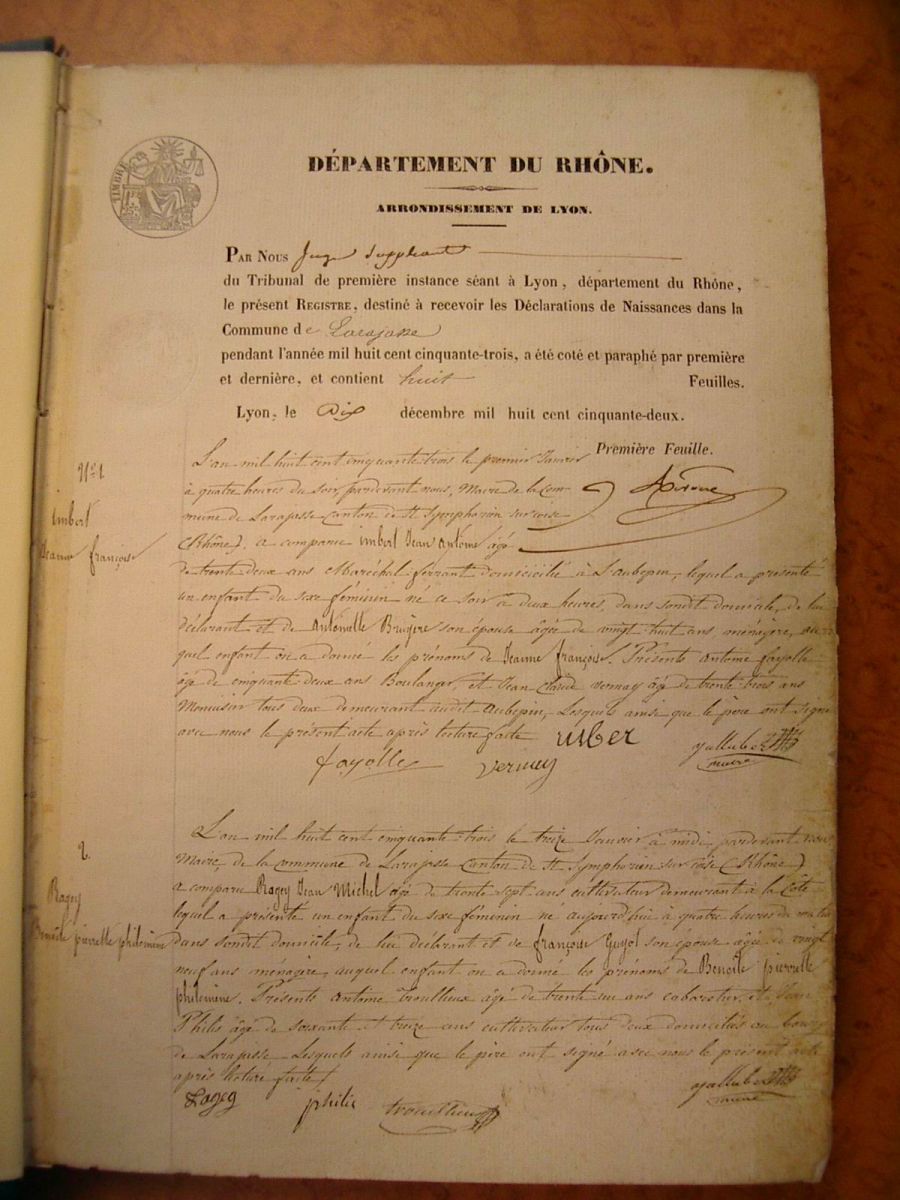 TIMBRE
DÉPARTEMENT DU RHÔNE.
ARRONDISSEMENT DE LYON.
PAR NOUS Juge Suppléant
du Tribunal de première instance séant à Lyon, département du Rhône,
le présent REGISTRE, destiné à recevoir les Déclarations de Naissances dans la
Commune de Larajasse
pendant l'année mil huit cent cinquante-trois, a été coté et paraphé par première
et dernière, et contient huit Feuilles.
Lyon, le Dix décembre mil huit cent cinquante-deux.
Première Feuille.
N° 1
imbert
Jeanne françoise
L'an mil huit cent cinquante trois le premier Janvier
à quatre heures du soir, pardevant nous, Maire de la Com-
mune de Larajasse Canton de St Symphorien sur coise
(Rhône), a comparu imbert Jean Antoine âgé
de trente deux ans Maréchal ferrant domicilié à L'aubepin, lequel a présenté
un enfant du sexe féminin né ce soir à deux heures, dans sondit domicile, de lui
déclarant et de Antoinette Bruyere son épouse âgée de vingt huit ans ménagère, au
quel enfant on a donné les prénoms de Jeanne françoise. Présents antoine fayolle
âgé de cinquante deux ans Boulanger, et Jean Claude vernay âgé de trente trois ans
Menuisier tous deux demeurant audit Aubepin, Lesquels ainsi que le père ont signé
avec nous le présent acte après lecture faite
fayolle vernay
maire
2
Ragey
Benoite pierrette philomine
L'an mil huit cent cinquante trois le treize Janvier à midi pardevant nous
Maire, de la commune de Larajasse Canton de St Symphorien sur coise (Rhône)
a comparu Ragey Jean Michel âgé de trente sept ans cultivateur demeurant à la Côte
lequel a présenté un enfant du sexe féminin né aujourd'hui à quatre heures du matin
dans sondit domicile, de lui déclarant et de françoise Guyot son épouse âgée de vingt
neuf ans ménagère, auquel enfant on a donné les prénoms de Benoite pierrette
philomine. Présents antoine trouilleux âgé de trente six ans cabaretier, et Jean
Philis âgé de soixante et treize ans cultivateur tous deux domiciliés au bourg
de Larajasse Lesquels ainsi que le père ont signé avec nous le présent acte
après lecture faite
Ragey philis
maire